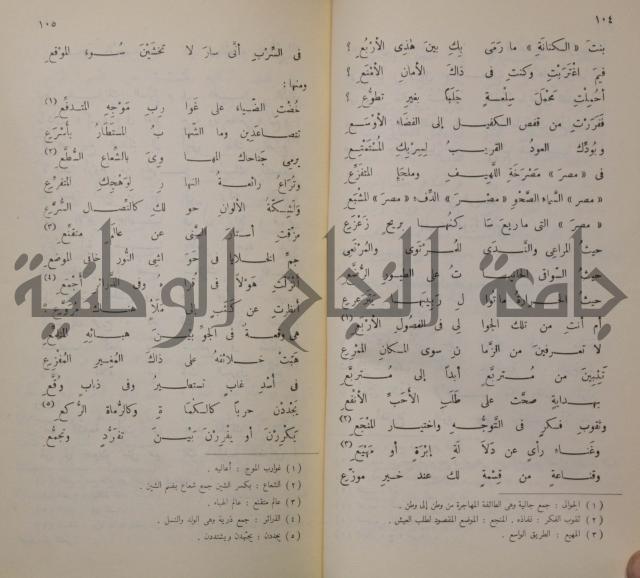 ١٠٤
بنتَ « الكنانةِ » ما رَمَى بِكِ بينَ هٰذِى الأرْبُعِ ؟
فيمَ اغْتَرَبْتِ وكنتِ فى ذاكَ الأمانِ الأمْنَعِ ؟
أحُمِلْتِ مَحْمَلَ سِلْعةٍ جَلَبًا بغيرِ تطوُّعِ ؟
فَفَرَرْتِ من قفصِ الكفيلِ إلى الفضاءِ الأوْسَعِ
ويُودُّكِ العودُ القريبُ لِسِرْبِكِ المُسْتَمْتِعِ
فى « مصرَ » مَصْرَخَةِ اللَّهيفِ وملجإِ المتفزِّعِ
« مصرِ » السَّماءِ الصَّحْوِ « مصْرَ » الدِّفءِ « مصرَ » المَشْبَعِ
« مصرَ » التى ما رِيعَ سَاكِنُها بريحٍ زَعْزَعِ
حيثُ المراعِى والنَّدَى للمُرْتَوَى والمُرْتَعَى
حيثُ السواقى الحانياتُ على الطيورِ الرُّضَّعِ
أم أنتِ من تلكَ الجوالى فى الفصُولِ الأرْبَعِ (١)
لا تعرفينَ من الزَّمانِ سوى المكانِ الممْرِعِ
تَثِبينَ من مُتربَّعٍ أبداً إلى مُتربَّعِ
بهدايةٍ صحَّت على طَلَبِ الأحَبِّ الأنفَعِ
وثقوبِ فكرٍ فى التَّوجُّهِ واختيارِ المَنْجَعِ (٢)
وغَناءِ رأىٍ عن دَلالةِ إبْرَةٍ أو مَهْيَعِ (٣)
وقناعةٍ من قِسْمةٍ لكِ عندَ خيرِ موزِّعِ
(١) الجوالى : جمع جالية وهى الطائفة المهاجرة من وطن إلى وطن .
(٢) ثقوب الفكر : نفاذه . المنجع : الموضع المقصود لطلب العيش .
(٣) المهيع : الطريق الواسع .
١٠٥
فى السِّرْبِ أنَّى سارَ لا تخشَيْنَ سُوءَ الموْقعِ
ومنها :
خُضْتِ الضِّياءَ على غَوارِبِ مَوْجِهِ المتدفِّعِ (١)
تتصاعَدِينَ وما الشِّهابُ المُسْتَطَارُ بأَسْرَعِ
يرمِى جَناحاك المهاوِىَ بالشِّعاعِ السُّطَّعِ (٢)
وتُرَاعُ رائعةُ النهارِ لِوَهْجِكِ المتفزِّعِ
الألوانِ حولكِ كالنِّصالِ الشُّرَّعِ
مزّقتِ أستارَ السَّنى عن عالَمٍ متقنِّعِ (٣)
جمِّ الخلايا فى حَواشى النُّورِ خافِى الموضعِ
عن كَثَبٍ إلى
هَبَّتْ خلائقُهُ على ذاكَ المُغِيرِ المُفْزِعِ
فى أُسْدِ غابٍ تستطيرُ وفى ذئابٍ وُقَّعِ
يَجْدُدْنَ حرباً كالكُماةِ وكالرُّماةِ الرُّكَّعِ (٥)
يَكْرُرْنَ أو يفْرِرْنَ بَيْنَ تفرّدٍ وتجمُّعِ
(١) غوارب الموج : أعاليه .
(٢) الشعاع : بكسر الشين جمع شعاع بضم الشين .
(٣) عالم متقنع : عالم الهباء .
(٤) الذرائر : جمع ذرية وهى الولد والنسل .
(٥) يجددن : يجتهدن ويشتددن .
جامعة النجاح الوطنية